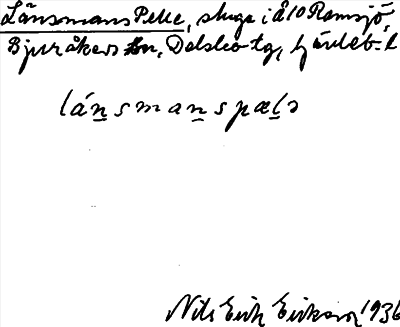 Länsmans Pelle, stuga i Å 10 Ramsjö,
Bjuråkers sn, Delsbo tg, Gävleb. l
länsmanspælə
Nils Erik Erikson 1936